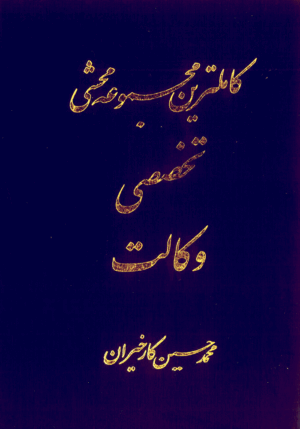 کاملترین مجموعه محشی
تخصصی
وکالت
محمد حسین کارخیران